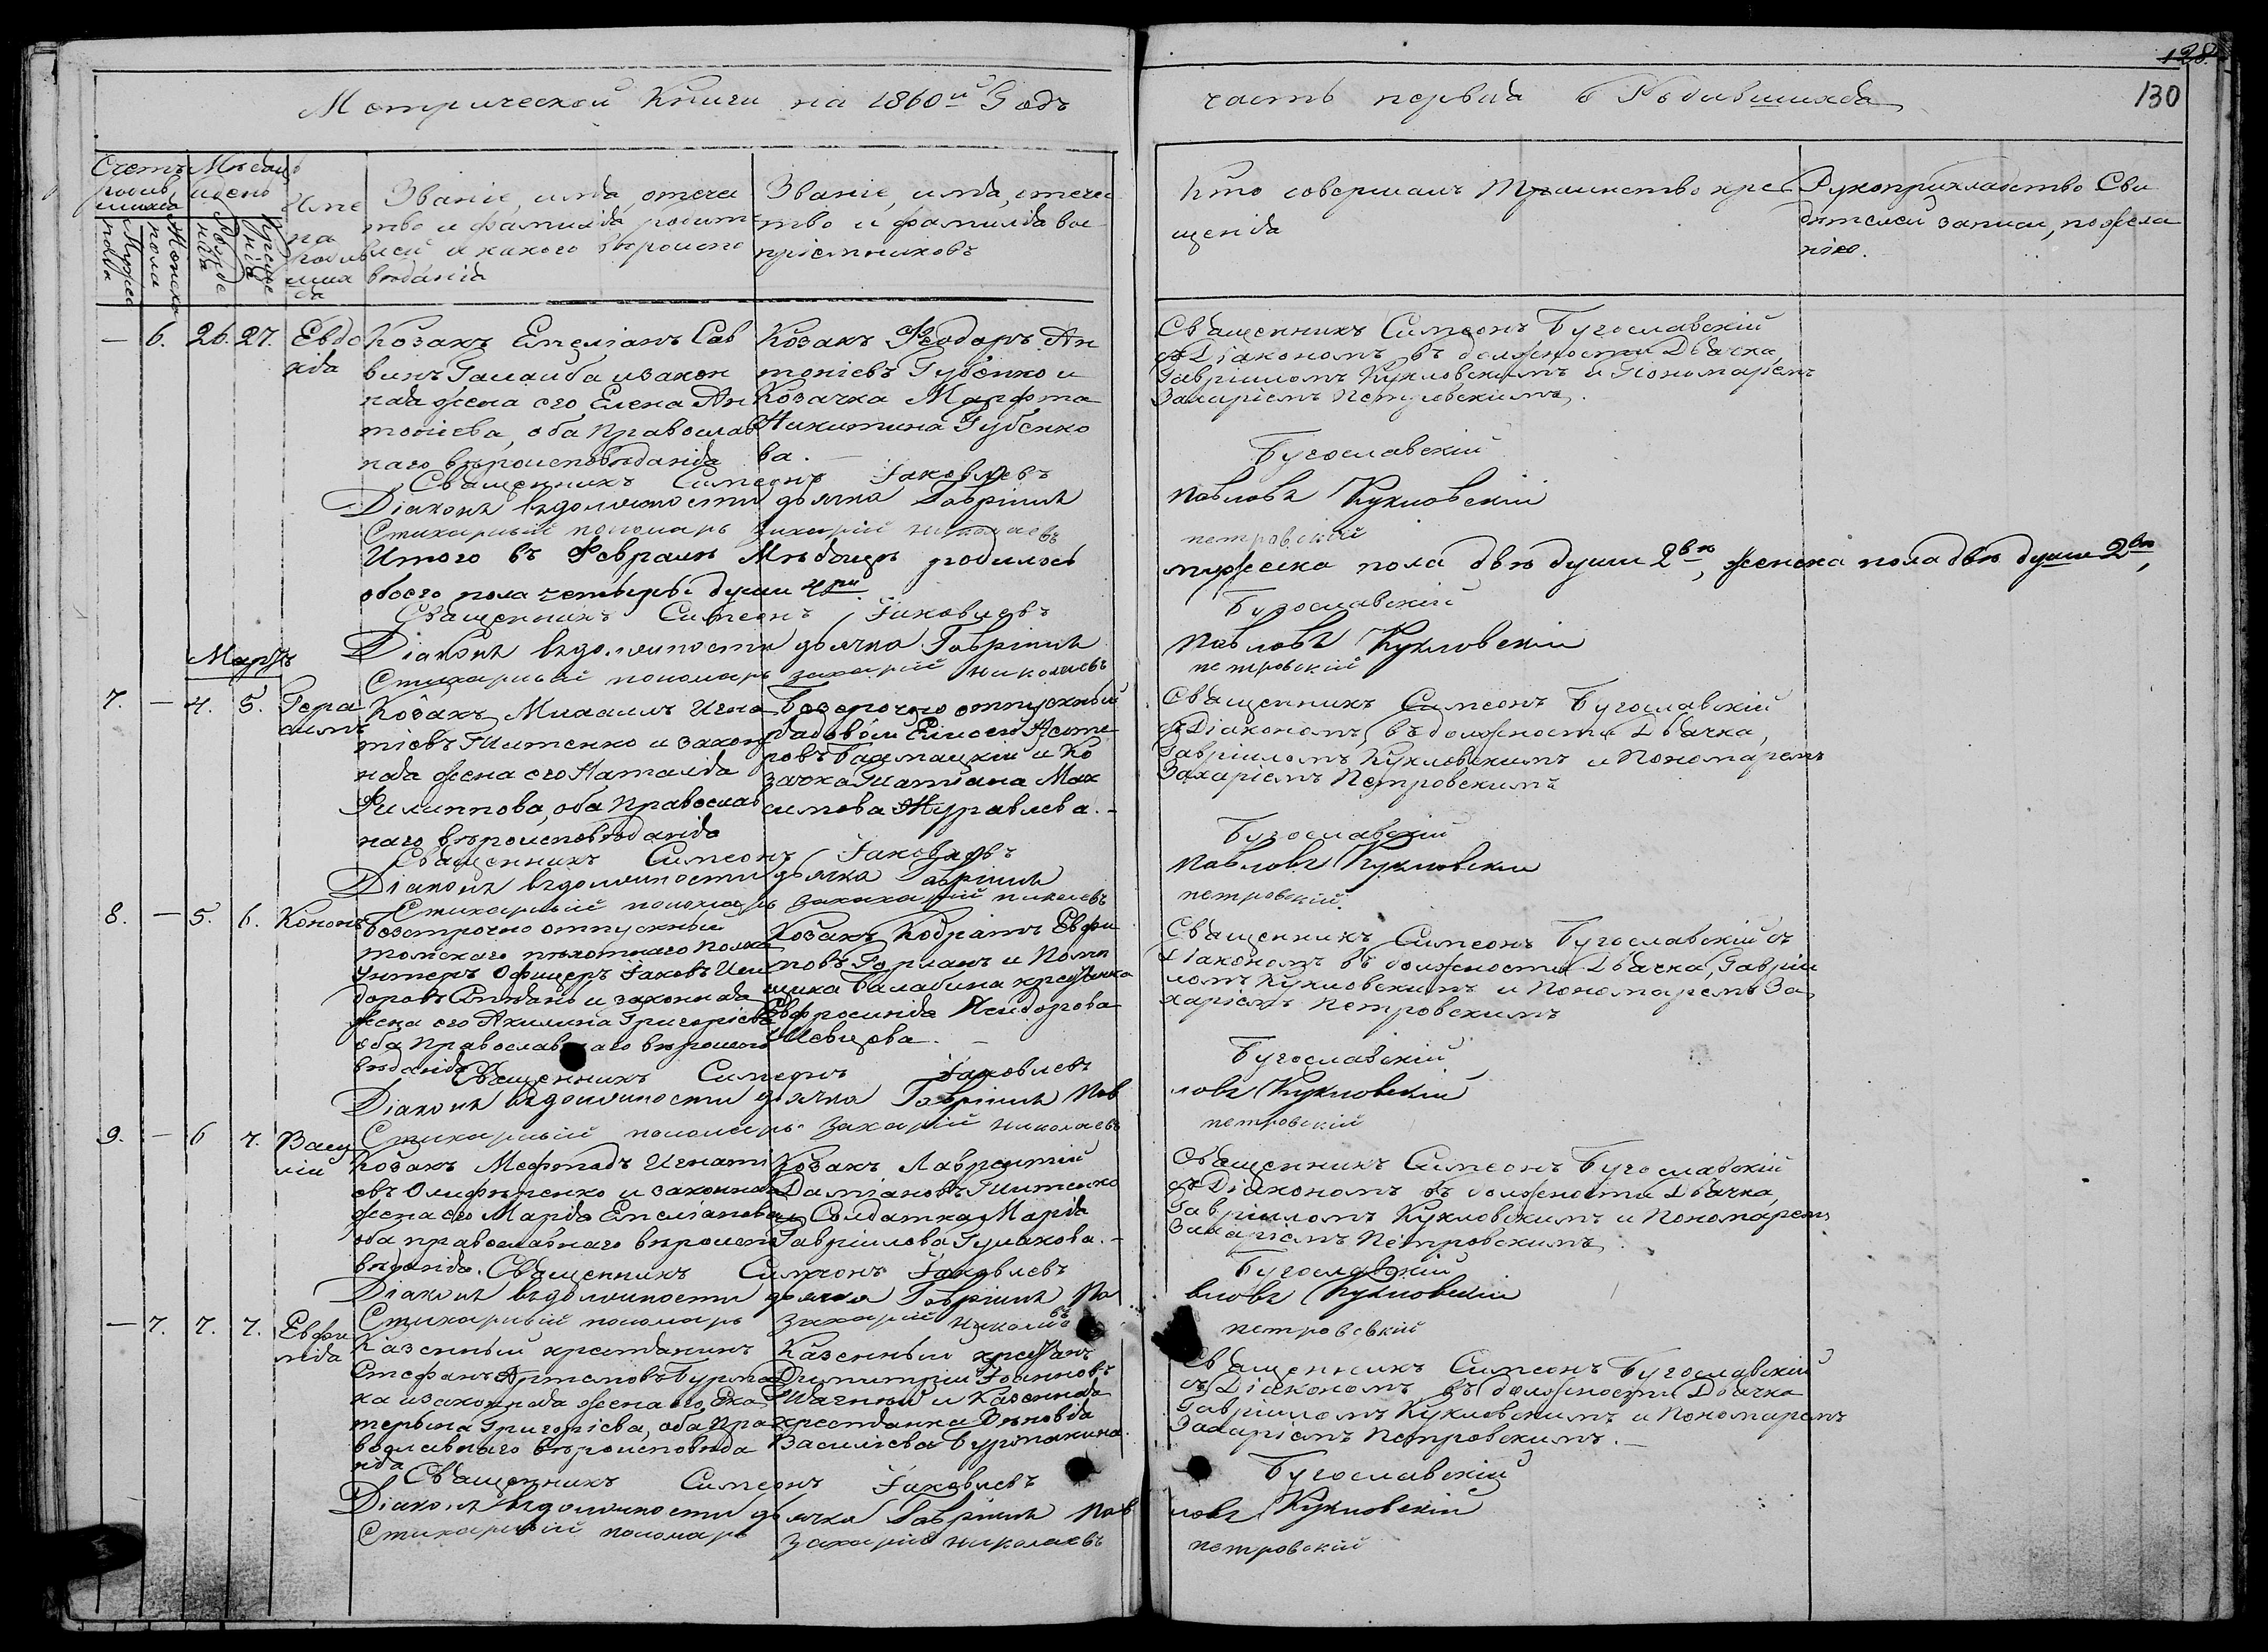 128.
130
Метрической Книги на 1860й Годъ
часть первая о Родившихся
Счетъ родив шихся
Мужеска пола
Женска пола
Мѣсяцъ и день
Рожде нія
Креще нія
Име на родив шихся
Званіе, имя, отече
ство и фамилія родит
лей и какого вѣроиспо
вѣданія
Званіе, имя, отече
ство и фамилія вос
пріемниковъ
Кто совершалъ Таинство кре
щенія
Рукоприкладство Сви
дѣтелей записи, по жела
нію.
— 6. 26. 27. Евдо
кія
Козакъ Емеліанъ Сав
винъ Галайба и закон
ная жена его Елена Ан
тоніева, оба Православ
наго вѣроисповѣданія
Козакъ Ѳеодоръ Ан
тоніевъ Губенко и
Козачка Марфа
Никитина Губенко
ва. —
Священникъ Симеонъ Бугославскій
съ Діакономъ въ должности Дьячка,
Гавріиломъ Кукловскимъ и Пономаремъ
Захаріемъ Петровскимъ.
Священникъ Симеонъ Іаковлевъ Бугославскій
Діаконъ въ должности дьячка Гавріилъ Павловъ Кукловскій
Стихарный пономарь Захарій Николаевъ петровскій
Итого въ Февралѣ Мѣсяцѣ родилось мужеска пола двѣ души 2вѣ, женска пола двѣ души 2вѣ,
обоего пола четыре души 4ри
Священникъ Симеонъ Іаковлевъ Бугославскій
Діаконъ въ должности дьячка Гавріилъ Павловъ Кукловскій
Стихарный пономарь Захарій Николаевъ петровскій
Мартъ
7. — 4. 5. Гера
симъ
Козакъ Михаилъ Игна
тіевъ Титенко и закон
ная жена его Наталія
Филиппова, оба Православ
наго вѣроисповѣданія
Безсрочно отпускный
рядовой Елисей Несте
ровъ и Ко
зачка Татіана Мак
симова Журавлева. —
Священникъ Симеонъ Бугославскій
съ Діакономъ въ должности Дьячка,
Гавріиломъ Кукловскимъ и Пономаремъ
Захаріемъ Петровскимъ
Священникъ Симеонъ Іаковлевъ Бугославскій
Діаконъ въ должности дьячка Гавріилъ Павловъ Кукловскій
Стихарный пономарь Захарій Николаевъ петровскій.
8. — 5. 6. Кононъ
Безсрочно отпускный
Томскаго пѣхотнаго полка
Унтеръ Офицеръ Іаковъ Иси
доровъ и законная
жена его Акилина Григоріева
оба Православнаго вѣроиспо
вѣданія
Козакъ Кодратъ Евфи
мовъ и Помѣ
щика Балабина крестьянка
Евфросинія Исидорова
Шевцова. —
Священникъ Симеонъ Бугославскій съ
Діакономъ въ должности Дьячка, Гавріи
ломъ Кукловскимъ и Пономаремъ За
харіемъ Петровскимъ
Священникъ Симеонъ Іаковлевъ Бугославскій
Діаконъ въ должности дьячка Гавріилъ Павловъ Кукловскій
Стихарный пономарь Захарій Николаевъ петровскій
9. — 6 7. Васи
лій
Козакъ Меѳодъ Игнати
евъ Олифѣренко и законная
жена его Марія Емеліанова
оба православнаго вѣроиспо
вѣданія.
Козакъ Лаврентій
Даміановъ Титенко
и Солдатка Марія
Гавріилова Гулакова. —
Священникъ Симеонъ Бугославскій
съ Діакономъ въ должности Дьячка,
Гавріиломъ Кукловскимъ и Пономаремъ
Захаріемъ Петровскимъ.
Священникъ Симеонъ Іаковлевъ Бугославскій
Діаконъ въ должности дьячка Гавріилъ Павловъ Кукловскій
Стихарный пономарь Захарій Николаевъ петровский
— 7. 7. 7. Евфи
мія
Казенный крестянинъ
Стефанъ Артемовъ Бурма
ка и законная жена его Ека
терина Григоріева, оба Пра
вославнаго вѣроисповѣда
нія
Казенный крестьян
Димитрій Іоанновъ
и Казенная
крестянка Зѣновія
Василіева Бурмакина.
Священникъ Симеонъ Бугославскій
съ Діакономъ въ должности Дьячка
Гавріиломъ Кукловскимъ и Пономаремъ
Захаріемъ Петровскимъ. —
Священникъ Симеонъ Іаковлевъ Бугославскій
Діаконъ въ должности дьячка Гавріилъ Павловъ Кукловскій
Стихарный пономарь Захарій Николаевъ петровский